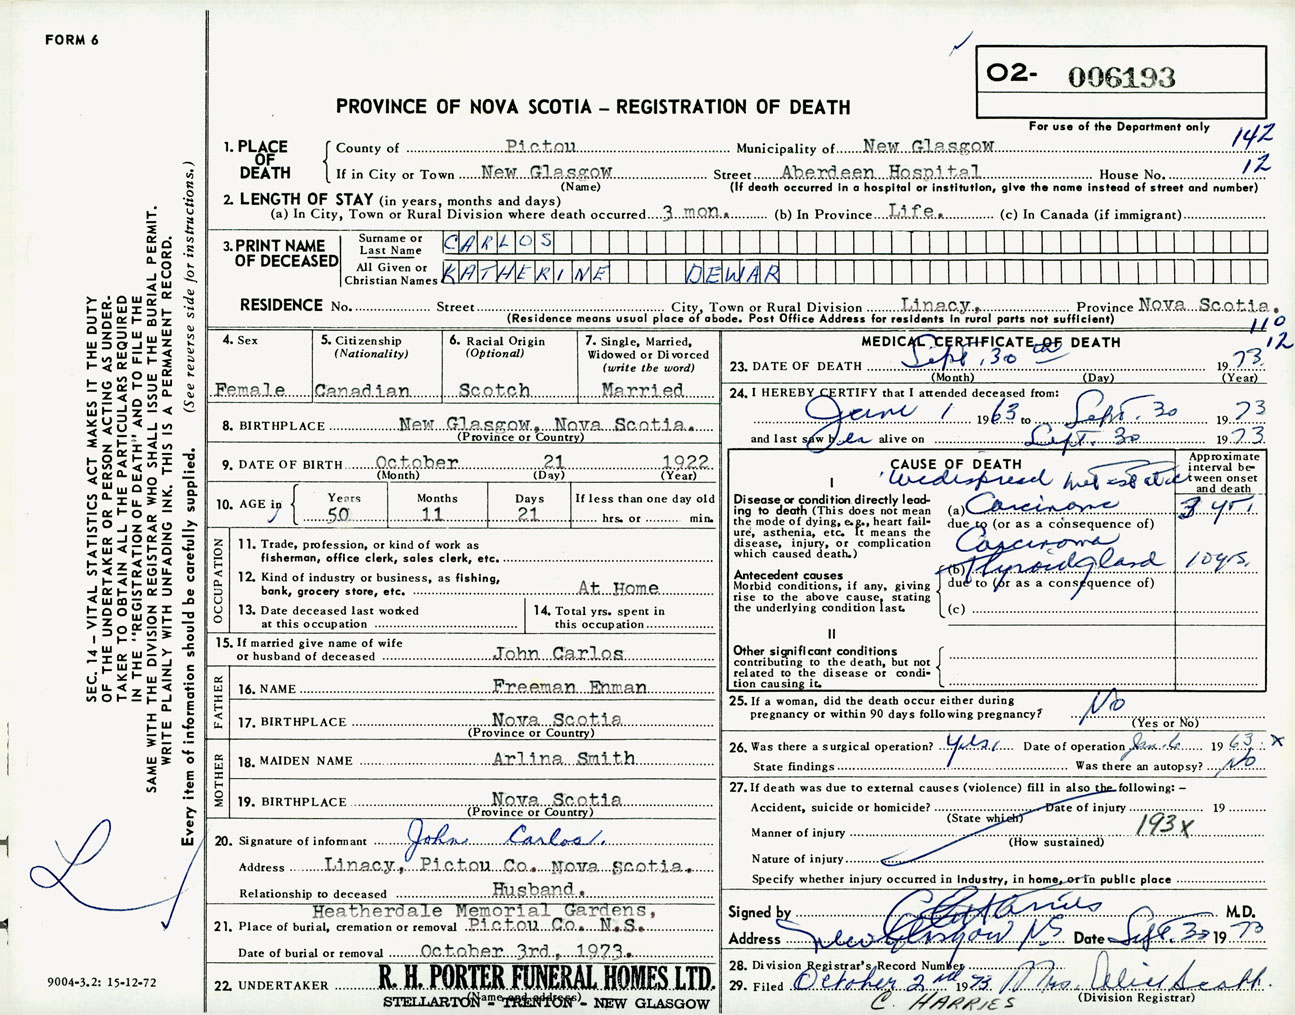 FORM 6
O2- 006193
PROVINCE OF NOVA SCOTIA – REGISTRATION OF DEATH
For use of the Department only
142
12
1. PLACE OF DEATH
County of Pictou Municipality of New Glasgow
If in City or Town New Glasgow Street Aberdeen Hospital House No.
(Name) (If death occurred in a hospital or institution, give the name instead of street and number)
2. LENGTH OF STAY (in years, months and days)
(a) In City, Town or Rural Division where death occurred 3 mon. (b) In Province Life. (c) In Canada (if immigrant)
3. PRINT NAME OF DECEASED
Surname or Last Name CARLOS
All Given or Christian Names KATHERINE DEWAR
RESIDENCE No. Street City, Town or Rural Division Linacy, Province Nova Scotia.
(Residence means usual place of abode. Post Office Address for residents in rural parts not sufficient)
110
12
4. Sex
Female
5. Citizenship
(Nationality)
Canadian
6. Racial Origin
(Optional)
Scotch
7. Single, Married,
Widowed or Divorced
(write the word)
Married
8. BIRTHPLACE New Glasgow, Nova Scotia.
(Province or Country)
9. DATE OF BIRTH October 21 1922
(Month) (Day) (Year)
10. AGE in
Years 50
Months 11
Days 21
If less than one day old
hrs. or min.
OCCUPATION
11. Trade, profession, or kind of work as
fisherman, office clerk, sales clerk, etc.
12. Kind of industry or business, as fishing,
bank, grocery store, etc. At Home
13. Date deceased last worked
at this occupation
14. Total yrs. spent in
this occupation
15. If married give name of wife
or husband of deceased John Carlos
FATHER
16. NAME Freeman Enman
17. BIRTHPLACE Nova Scotia
(Province or Country)
MOTHER
18. MAIDEN NAME Arlina Smith
19. BIRTHPLACE Nova Scotia
(Province or Country)
20. Signature of informant John Carlos.
Address Linacy, Pictou Co. Nova Scotia.
Relationship to deceased Husband.
Heatherdale Memorial Gardens,
21. Place of burial, cremation or removal Pictou Co. N.S.
Date of burial or removal October 3rd, 1973.
22. UNDERTAKER R. H. PORTER FUNERAL HOMES LTD.
(Name and address)
STELLARTON - TRENTON - NEW GLASGOW
MEDICAL CERTIFICATE OF DEATH
23. DATE OF DEATH Sept. 30 th 1973.
(Month) (Day) (Year)
24. I HEREBY CERTIFY that I attended deceased from:
June 1 1963 to Sept. 30 1973
and last saw her alive on Sept. 30 1973
CAUSE OF DEATH
Approximate
interval be-
tween onset
and death
I
Widespread metastatic
Disease or condition directly lead-
ing to death (This does not mean
the mode of dying, e.g., heart fail-
ure, asthenia, etc. It means the
disease, injury, or complication
which caused death.)
(a) Carcinoma 3 yrs.
due to (or as a consequence of)
Carcinoma
(b) Thyroid gland 10 yrs.
due to (or as a consequence of)
Antecedent causes
Morbid conditions, if any, giving
rise to the above cause, stating
the underlying condition last.
(c)
II
Other significant conditions
contributing to the death, but not
related to the disease or condi-
tion causing it.
25. If a woman, did the death occur either during
pregnancy or within 90 days following pregnancy? No
(Yes or No)
26. Was there a surgical operation? Yes. Date of operation Jan. 6 1963. x
State findings Was there an autopsy? No
27. If death was due to external causes (violence) fill in also the following: –
Accident, suicide or homicide? Date of injury 19
(State which)
Manner of injury 193x
(How sustained)
Nature of injury
Specify whether injury occurred in Industry, in home, or in public place
Signed by M.D.
Address New Glasgow NS Date Sept. 30 1973
28. Division Registrar's Record Number
29. Filed October 2nd 1973 Mrs. Alice Scott.
(Division Registrar)
C. HARRIES
SEC. 14 – VITAL STATISTICS ACT MAKES IT THE DUTY
OF THE UNDERTAKER OR PERSON ACTING AS UNDER-
TAKER TO OBTAIN ALL THE PARTICULARS REQUIRED
IN THE "REGISTRATION OF DEATH" AND TO FILE THE
SAME WITH THE DIVISION REGISTRAR WHO SHALL ISSUE THE BURIAL PERMIT.
WRITE PLAINLY WITH UNFADING INK. THIS IS A PERMANENT RECORD.
Every item of information should be carefully supplied. (See reverse side for instructions.)
9004-3.2: 15-12-72